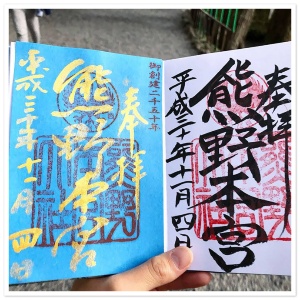 奉拝
熊野本宮
平成三十年十一月四日
御創建二千五十年
奉拝
熊野本宮
平成三十年十一月四日